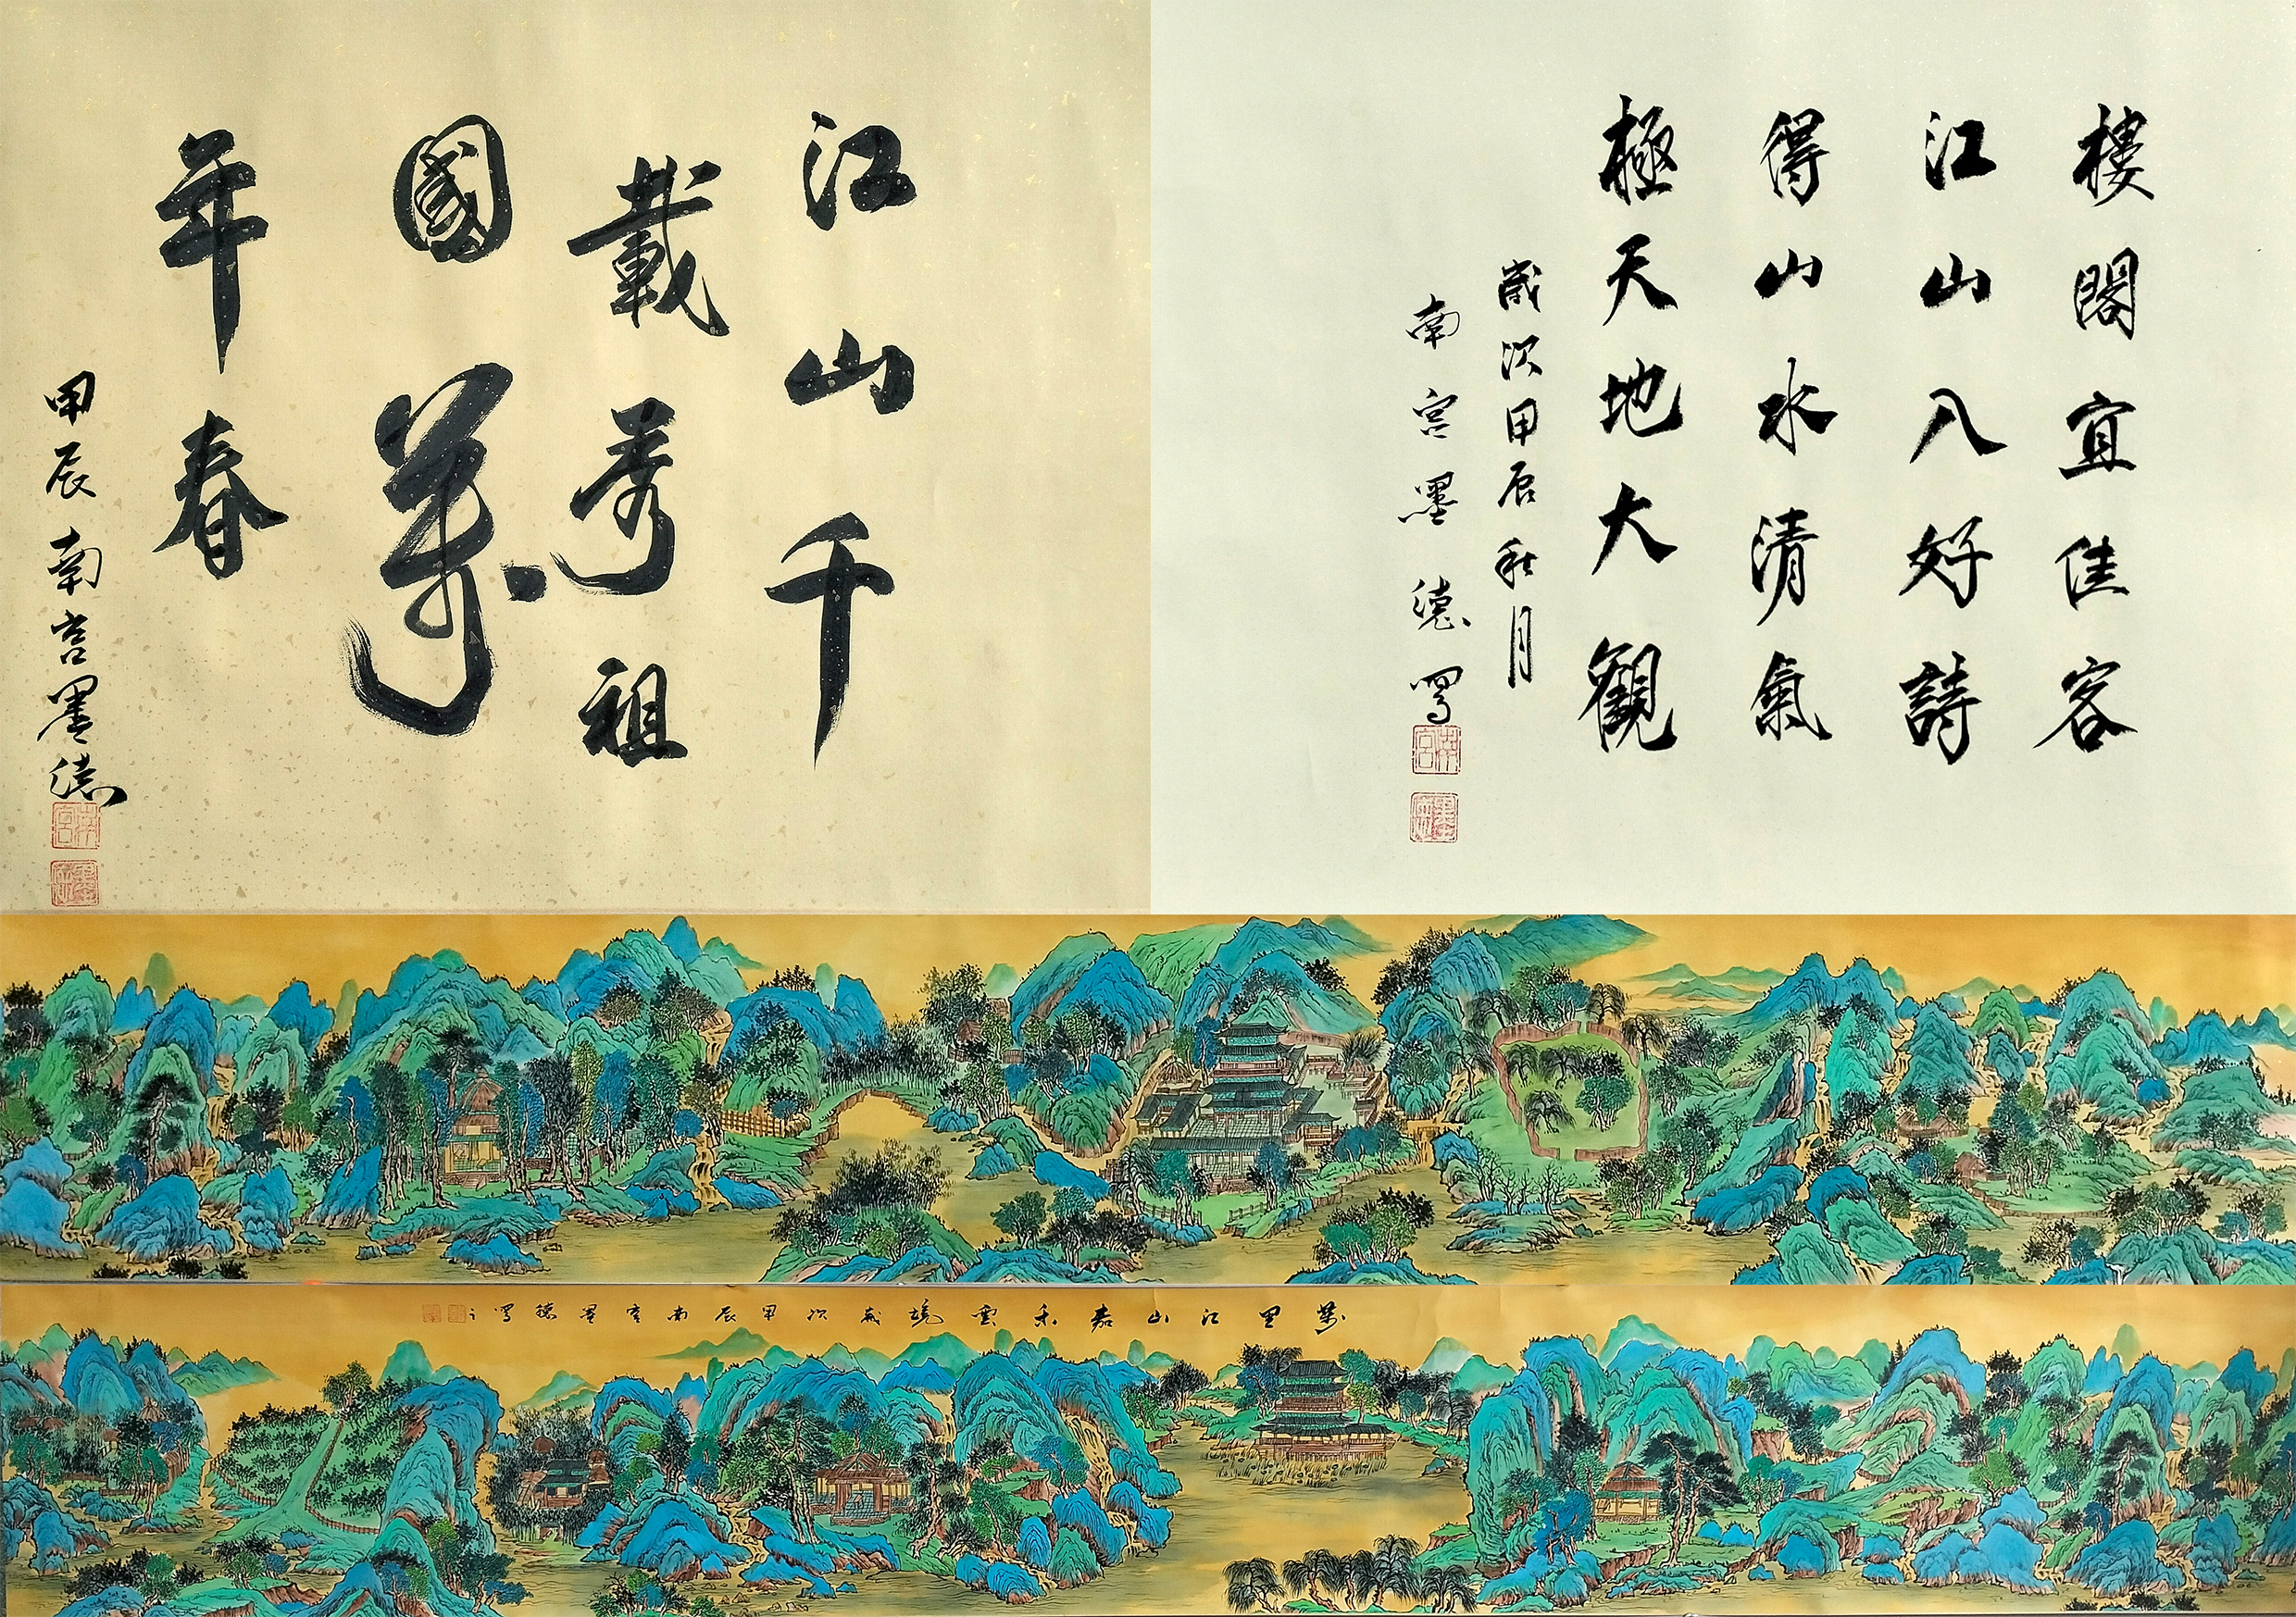 樓閣宜佳客
江山入好詩
得山水清氣
極天地大觀
歲次甲辰秋月
南宮墨德寫
南宮
江山千
載秀祖
國萬
年春
甲辰南宮墨德
南宮
萬里江山嘉禾雲境歲次甲辰南宮墨德寫之